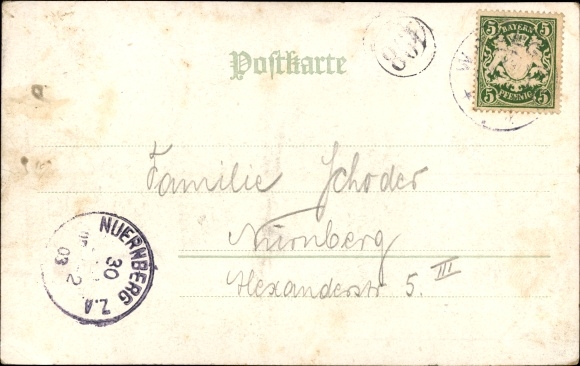 Postkarte
BAYERN
5 5
5 PFENNIG 5
Familie Schoder
Nürnberg
Alexanderstr 5. III
NUERNBERG Z.A
30
03